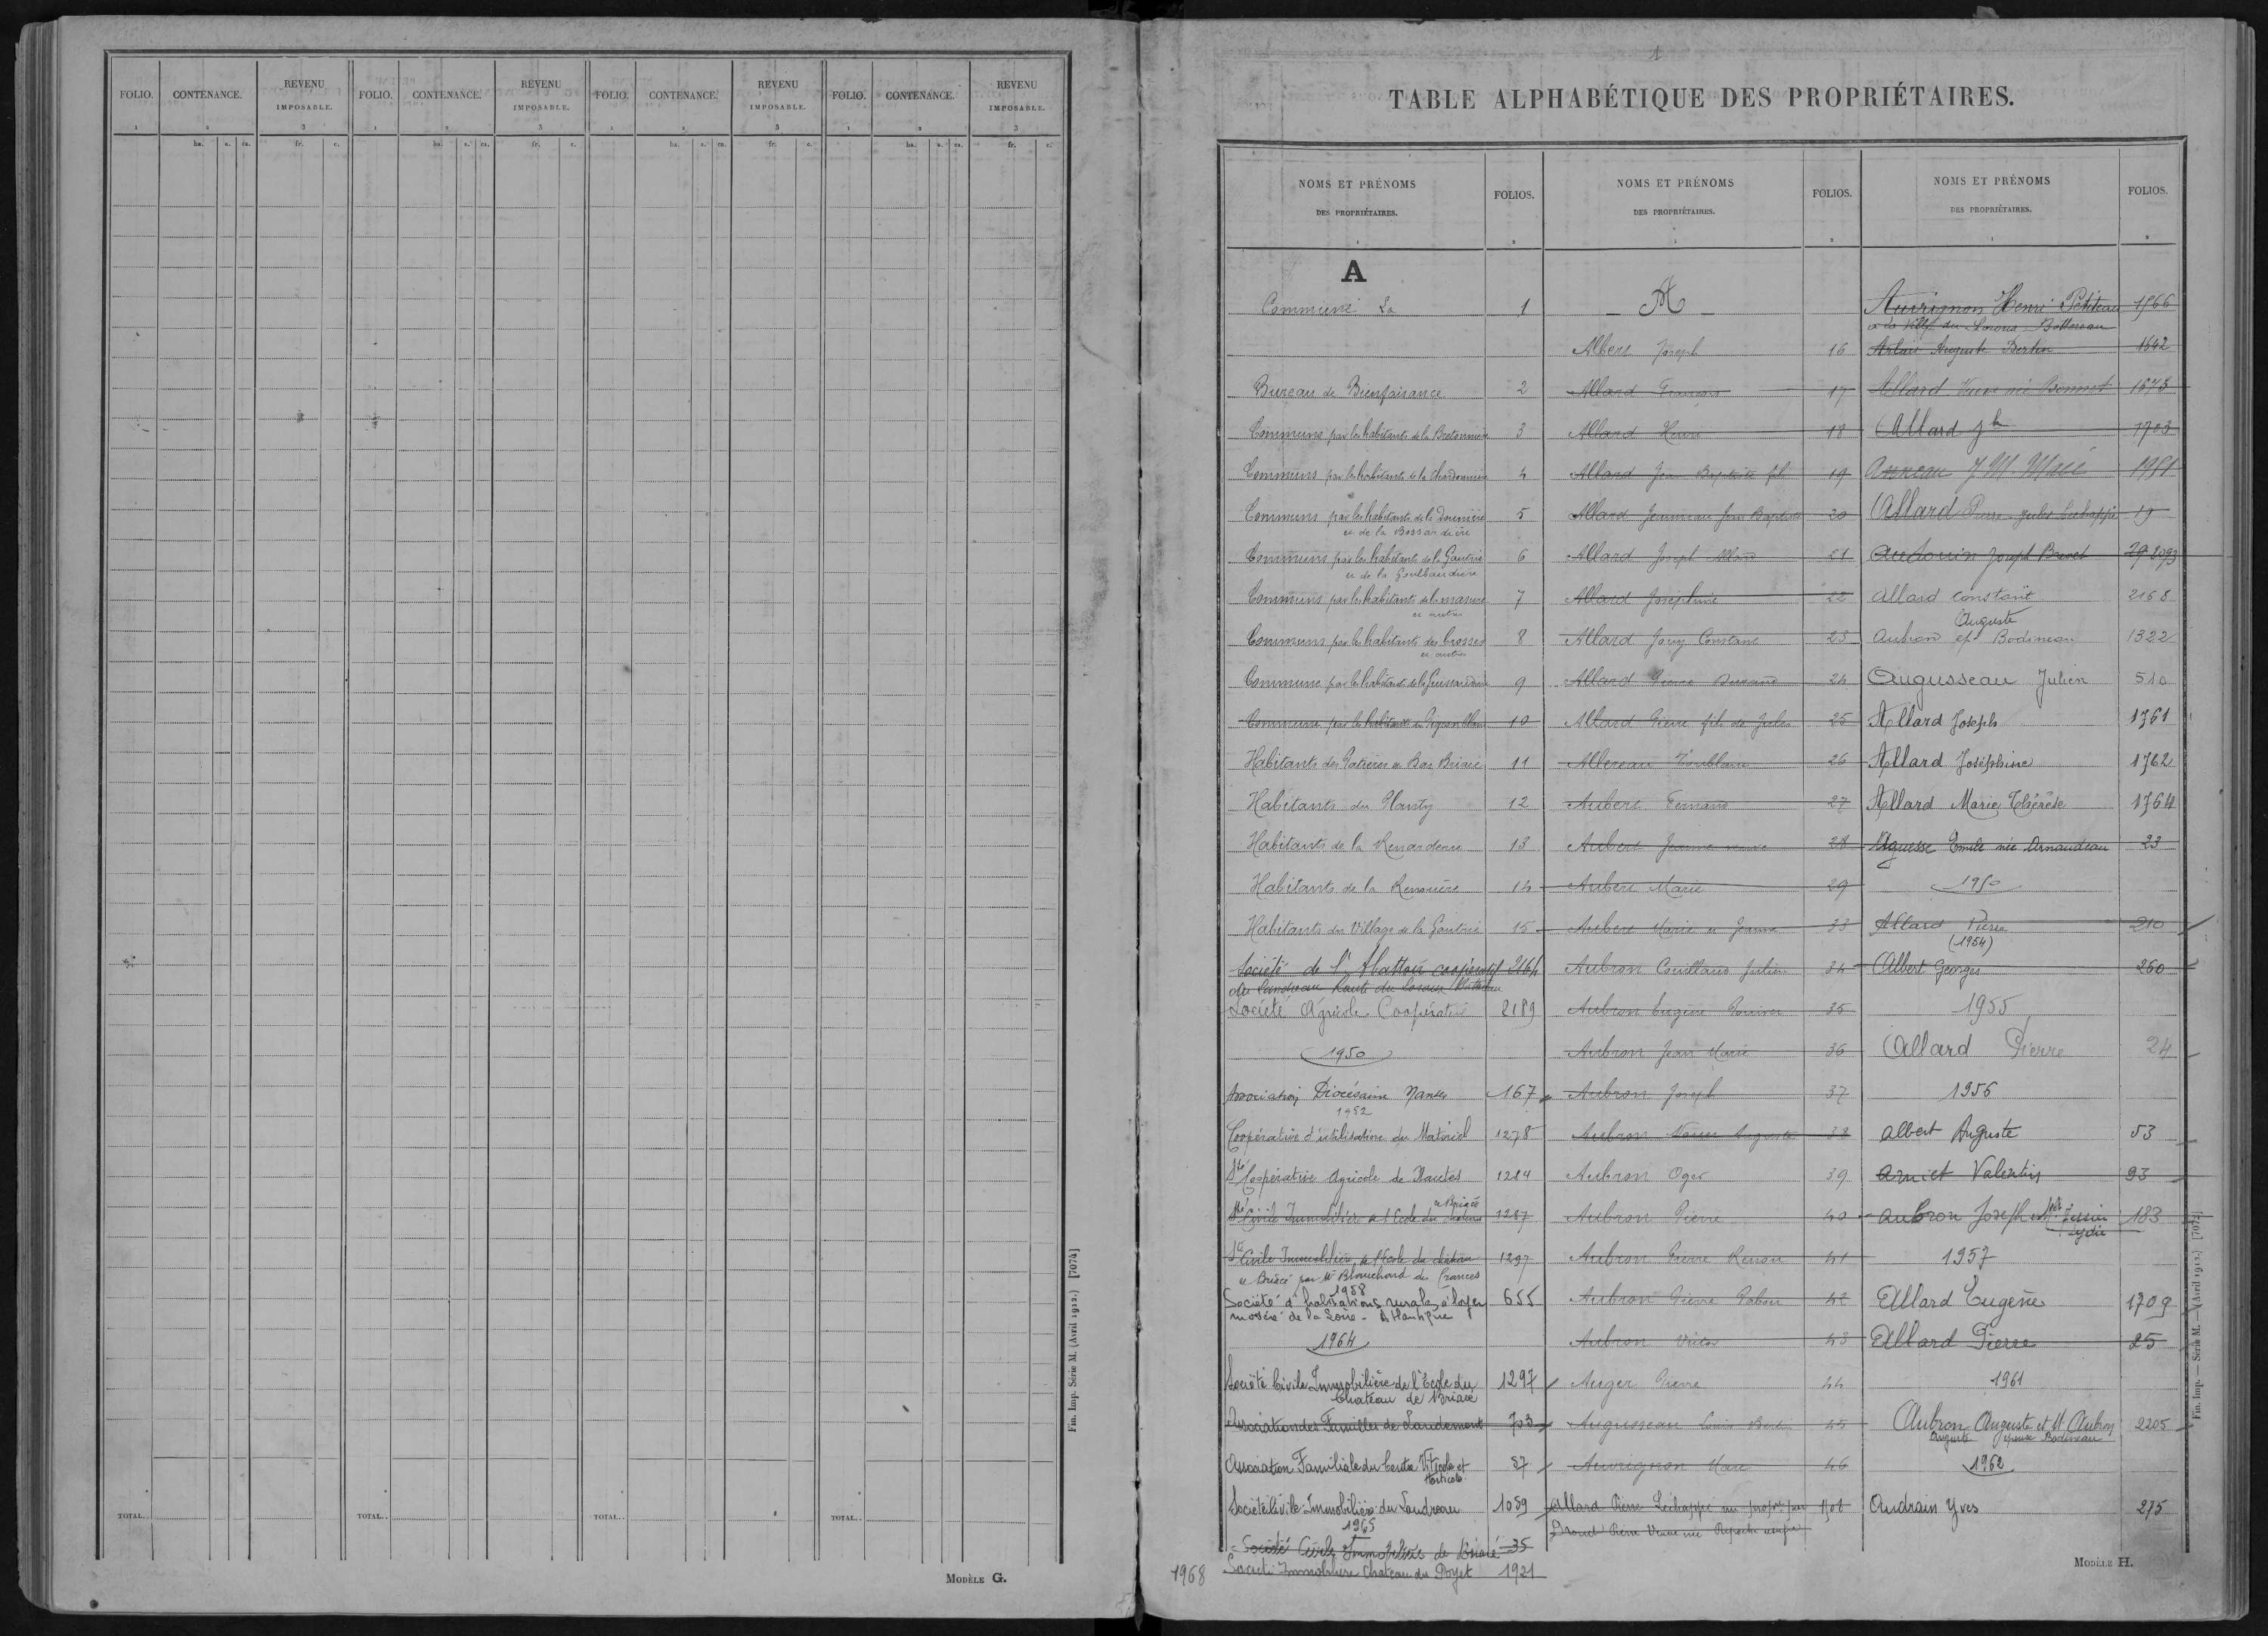 FOLIO. CONTENANCE. REVENU IMPOSABLE. FOLIO. CONTENANCE. REVENU IMPOSABLE. FOLIO. CONTENANCE. REVENU IMPOSABLE. FOLIO. CONTENANCE. REVENU IMPOSABLE.
1 2 3 1 2 3 1 2 3 1 2 3
ha. a. ca. fr. c. ha. a. ca. fr. c. ha. a. ca. fr. c. ha. a. ca. fr. c.
TOTAL.. TOTAL.. TOTAL.. TOTAL..
MODÈLE G.
Fin. Imp. Série M. (Avril 1912.) [7074]
1
TABLE ALPHABÉTIQUE DES PROPRIÉTAIRES.
NOMS ET PRÉNOMS
DES PROPRIÉTAIRES.
FOLIOS.
A
Commune La 1
Bureau de Bienfaisance 2
Communs par les habitants de la Bretonnière 3
Communs par les habitants de la Chardonnière 4
Communs par les habitants de la Dounière 5
et de la Bossardière
Communs par les habitants de la Gautrie 6
et de la Goulbaudière
Communs par les habitants de la masure 7
et autres
Communs par les habitants des brosses 8
et autres
Communs par les habitants de la 9
Communs par les habitants du 10
Habitants des Gatières et Bas Briacé 11
Habitants du Planty 12
Habitants de la Renarderie 13
Habitants de la Renouère 14
Habitants du Village de la Gautrie 15
Société de l'Abattoir coopératif 2164
du Landreau Route du Loroux Bottereau
Société Agricole Coopérative 2189
1950
Association Diocésaine Nantes 167
1952
Coopérative d'utilisation du Matériel 1278
Sté Coopérative Agricole de Nantes 1284
Sté Civile Immobilière de l'Ecole du château 1287
de Briacé
Sté Civile Immobilière de l'Ecole du château 1297
de Briacé par Mr Blanchard des Frances
1958
Société d'habitations rurales à loyer 655
modéré de la Loire-Atlantique
1964
Société Civile Immobilière de l'Ecole du 1297
Chateau de Briacé
Association des Familles de Landemont 703
Association Familiale du Centre Viticole et 57
Horticole
Société Civile Immobilière du Landreau 1059
1965
Société Civile Immobilière de Briacé 35
1968 Société Immobilière Chateau du Poyet 1921
NOMS ET PRÉNOMS
DES PROPRIÉTAIRES.
FOLIOS.
A
Albert Joseph 16
Allard François 17
Allard Henri 18
Allard Jean Baptiste fils 19
Allard Jeanneau Jean Baptiste 20
Allard Joseph Allard 21
Allard Joséphine 22
Allard Jouy Constant 23
Allard Pierre Durand 24
Allard Pierre fils de Jules 25
Allereau 26
Aubert Fernand 27
Aubert Jeanne veuve 28
Aubert Marie 29
Aubert Marie et Jeanne 33
Aubron Couillaud Julien 34
Aubron Eugène 35
Aubron Jean Marie 36
Aubron Joseph 37
Aubron Auguste 38
Aubron Oger 39
Aubron Pierre 40
Aubron Pierre Renou 41
Aubron Pierre 42
Aubron Victor 43
Auger Pierre 44
Augusseau Louis 45
Auvrignon Marc 46
Allard Pierre Léchappé
Pierre Veuve née
NOMS ET PRÉNOMS
DES PROPRIÉTAIRES.
FOLIOS.
Auvrignon Henri Petiteau 1566
Arlais Auguste Bertin 1642
Allard Veuve née Bonnet 1673
Allard Jh 1703
1981
Allard Pierre Jules Léchappé 19
Audouin Joseph 2093
Allard Constant 2168
Auguste
Aubron ép. Bodineau 1322
Augusseau Julien 510
Allard Joseph 1761
Allard Joséphine 1762
Allard Marie Thérèse 1764
Aguesse Emile née Arnaudeau 23
1950
Allard Pierre 210
(1954)
Albert Georges 260
1955
Allard Pierre 24
1956
Albert Auguste 53
Amiet Valentin 93
Aubron Joseph 183
Lydie
1957
Allard Eugène 1709
Allard Pierre 25
1961
Aubron Auguste et M. Aubron 2205
Auguste épouse Bodineau
1962
Audrain Yves 275
MODÈLE H.
Fin. Imp. — Série M. — (Avril 1912.) [7074]